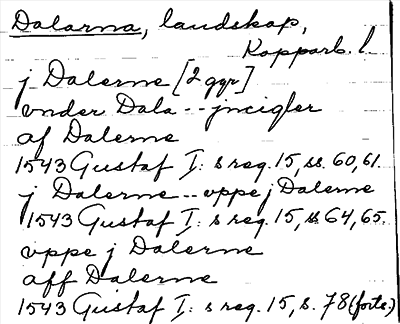 Dalarna, landskap,
Kopparb. l.
j Dalerne [2 ggr]
vnder Dala -- jncigler
af Dalerne
1543 Gustaf I: s reg. 15, ss. 60, 61.
j Dalerne -- vppe j Dalerne
1543 Gustaf I: s reg. 15, ss. 64, 65.
vppe j Dalerne
aff Dalerne
1543 Gustaf I: s reg. 15, s. 78 (forts.)